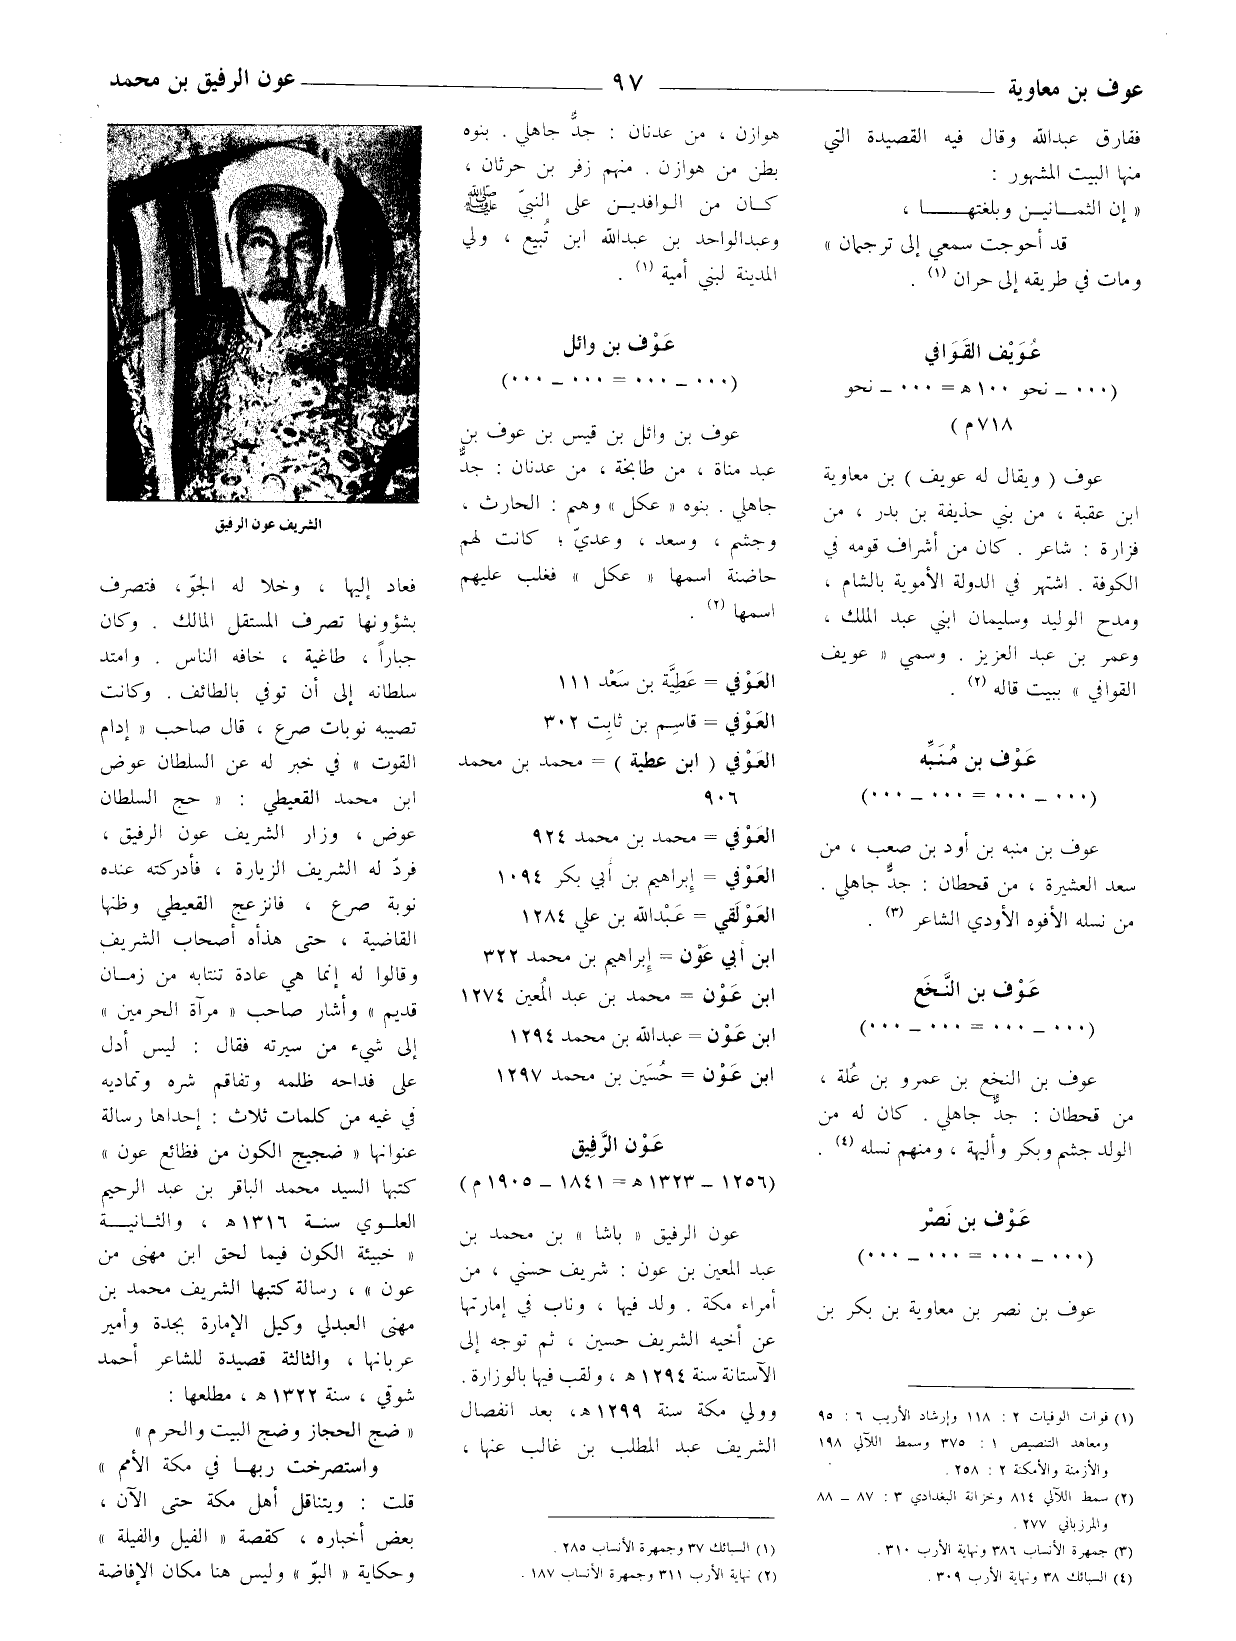 عوف بن معاوية
٩٧
عون الرفيق بن محمد
ففارق عبدالله وقال فيه القصيدة التي
منها البيت المشهور :
« إن الثمــانيــن وبلغتهــــا ،
قد أحوجت سمعي إلى ترجمان »
ومات في طريقه إلى حران (١) .
عُوَيْف القَوَافي
(٠٠٠ ــ نحو ١٠٠ ه = ٠٠٠ ــ نحو
٧١٨ م )
عوف ( ويقال له عويف ) بن معاوية
ابن عقبة ، من بني حذيفة بن بدر ، من
فزارة : شاعر . كان من أشراف قومه في
الكوفة . اشتهر في الدولة الأموية بالشام ،
ومدح الوليد وسليمان ابني عبد الملك ،
وعمر بن عبد العزيز . وسمي « عويف
القوافي » ببيت قاله (٢) .
عَوْف بن مُنَبِّه
(٠٠٠ ــ ٠٠٠ = ٠٠٠ ــ ٠٠٠)
عوف بن منبه بن أود بن صعب ، من
سعد العشيرة ، من قحطان : جدٌّ جاهلي .
من نسله الأفوه الأودي الشاعر (٣) .
عَوْف بن النَّخَع
(٠٠٠ ــ ٠٠٠ = ٠٠٠ ــ ٠٠٠)
عوف بن النخع بن عمرو بن عُلة ،
من قحطان : جدٌّ جاهلي . كان له من
الولد جشم وبكر وأليهة ، ومنهم نسله (٤) .
عَوْف بن نَصْر
(٠٠٠ ــ ٠٠٠ = ٠٠٠ ــ ٠٠٠)
عوف بن نصر بن معاوية بن بكر بن
(١) فوات الوفيات ٢ : ١١٨ وإرشاد الأريب ٦ : ٩٥
ومعاهد التنصيص ١ : ٣٧٥ وسمط اللآلي ١٩٨
والأزمنة والأمكنة ٢ : ٢٥٨ .
(٢) سمط اللآلي ٨١٤ وخزانة البغدادي ٣ : ٨٧ ــ ٨٨
والمرزباني ٢٧٧ .
(٣) جمهرة الأنساب ٣٨٦ ونهاية الأرب ٣١٠ .
(٤) السبائك ٣٨ ونهاية الأرب ٣٠٩ .
هوازن ، من عدنان : جدٌّ جاهلي . بنوه
بطن من هوازن . منهم زفر بن حرثان ،
كــان من الوافديــن على النبيّ ﷺ
وعبدالواحد بن عبدالله ابن تُبيع ، ولي
المدينة لبني أمية (١) .
عَوْف بن وائل
(٠٠٠ ــ ٠٠٠ = ٠٠٠ ــ ٠٠٠)
عوف بن وائل بن قيس بن عوف بن
عبد مناة ، من طابخة ، من عدنان : جدٌّ
جاهلي . بنوه « عكل » وهم : الحارث ،
وجشم ، وسعد ، وعديّ ؛ كانت لهم
حاضنة اسمها « عكل » فغلب عليهم
اسمها (٢) .
العَوْفي = عَطِيَّة بن سَعْد ١١١
العَوْفي = قاسِم بن ثابِت ٣٠٢
العَوْفي ( ابن عطية ) = محمد بن محمد
٩٠٦
العَوْفي = محمد بن محمد ٩٢٤
العَوْفي = إبراهيم بن أبي بكر ١٠٩٤
العَوْلَقي = عَبْدالله بن علي ١٢٨٤
ابن أبي عَوْن = إبراهيم بن محمد ٣٢٢
ابن عَوْن = محمد بن عبد المُعين ١٢٧٤
ابن عَوْن = عبدالله بن محمد ١٢٩٤
ابن عَوْن = حُسَين بن محمد ١٢٩٧
عَوْن الرَّفِيق
(١٢٥٦ ــ ١٣٢٣ ه = ١٨٤١ ــ ١٩٠٥ م)
عون الرفيق « باشا » بن محمد بن
عبد المعين بن عون : شريف حسني ، من
أمراء مكة . ولد فيها ، وناب في إمارتها
عن أخيه الشريف حسين ، ثم توجه إلى
الآستانة سنة ١٢٩٤ ه ، ولقب فيها بالوزارة .
وولي مكة سنة ١٢٩٩ ه، بعد انفصال
الشريف عبد المطلب بن غالب عنها ،
(١) السبائك ٣٧ وجمهرة الأنساب ٢٨٥ .
(٢) نهاية الأرب ٣١١ وجمهرة الأنساب ١٨٧ .
الشريف عون الرفيق
فعاد إليها ، وخلا له الجوّ ، فتصرف
بشؤونها تصرف المستقل المالك . وكان
جباراً ، طاغية ، خافه الناس . وامتد
سلطانه إلى أن توفي بالطائف . وكانت
تصيبه نوبات صرع ، قال صاحب « إدام
القوت » في خبر له عن السلطان عوض
ابن محمد القعيطي : « حج السلطان
عوض ، وزار الشريف عون الرفيق ،
فردّ له الشريف الزيارة ، فأدركته عنده
نوبة صرع ، فانزعج القعيطي وظنها
القاضية ، حتى هدأه أصحاب الشريف
وقالوا له إنما هي عادة تنتابه من زمــان
قديم » وأشار صاحب « مرآة الحرمين »
إلى شيء من سيرته فقال : ليس أدل
على فداحه ظلمه وتفاقم شره وتماديه
في غيه من كلمات ثلاث : إحداها رسالة
عنوانها « ضجيج الكون من فظائع عون »
كتبها السيد محمد الباقر بن عبد الرحيم
العلــوي سنــة ١٣١٦ ه ، والثـانيــة
« خبيئة الكون فيما لحق ابن مهنى من
عون » ، رسالة كتبها الشريف محمد بن
مهنى العبدلي وكيل الإمارة بجدة وأمير
عربانها ، والثالثة قصيدة للشاعر أحمد
شوقي ، سنة ١٣٢٢ ه ، مطلعها :
« ضج الحجاز وضج البيت والحرم »
واستصرخت ربهــا في مكة الأمم »
قلت : ويتناقل أهل مكة حتى الآن ،
بعض أخباره ، كقصة « الفيل والفيلة »
وحكاية « البوّ » وليس هنا مكان الإفاضة